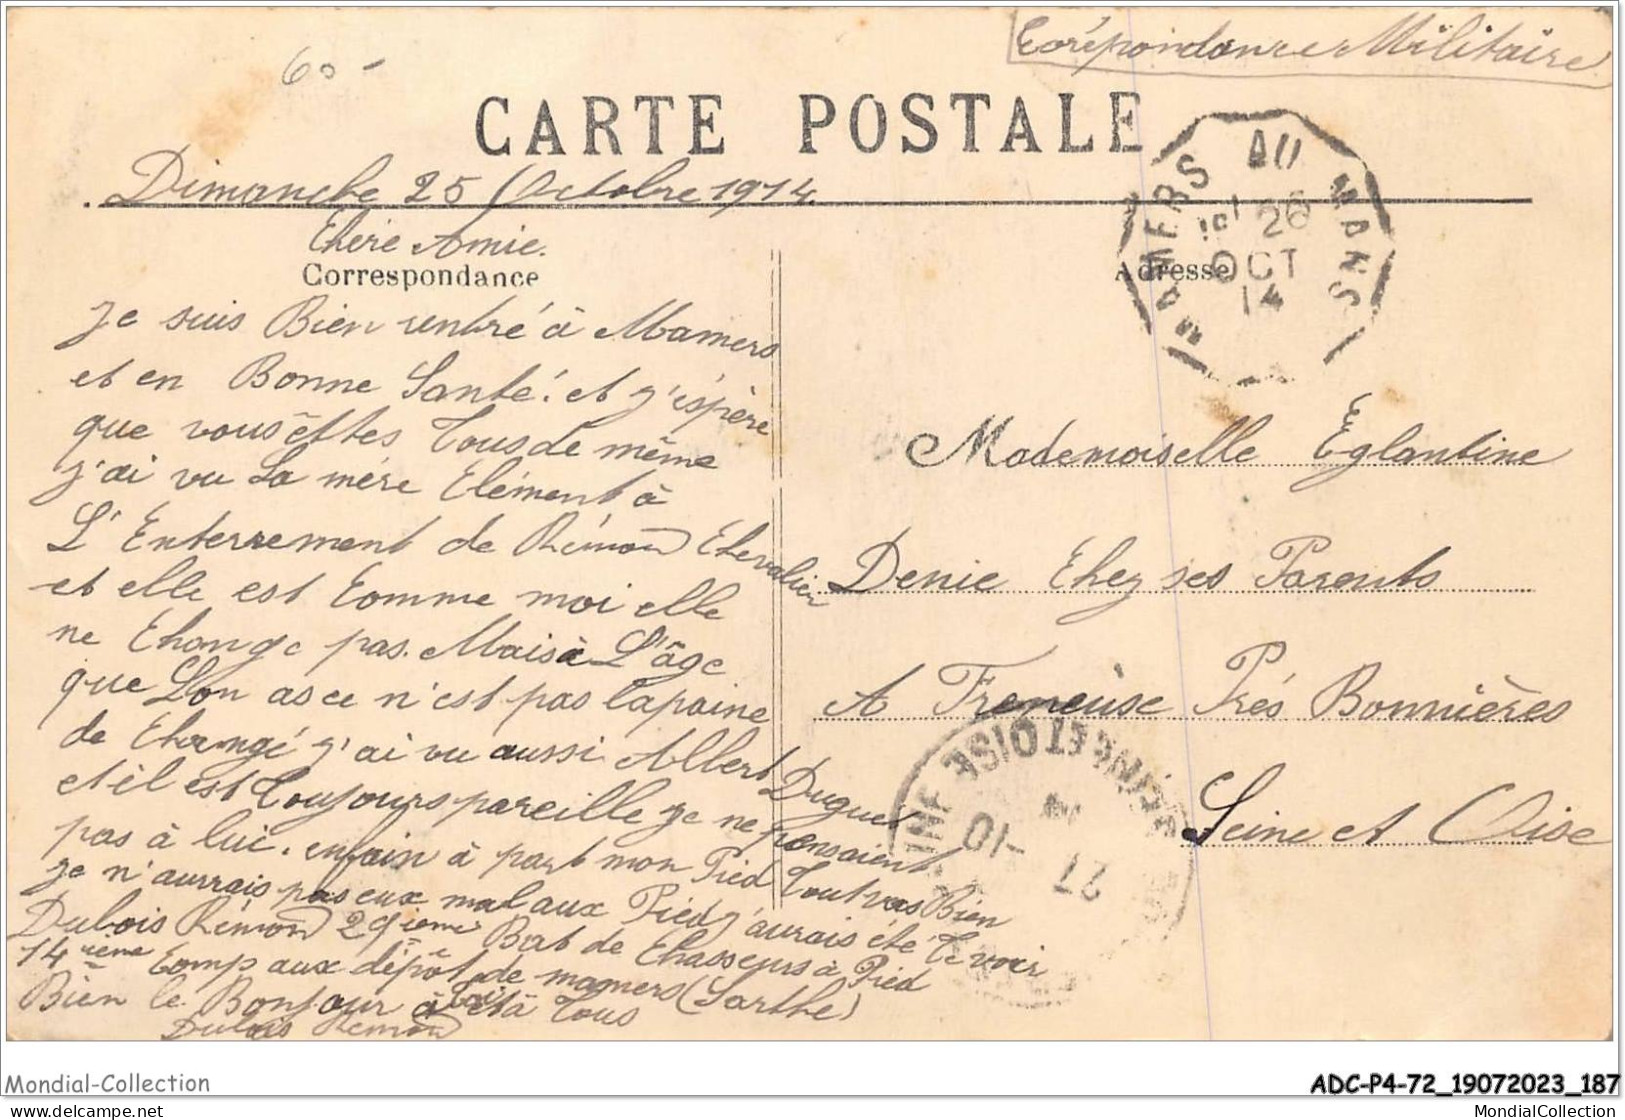 Corépondance Militaire
60 -
CARTE POSTALE
Dimanche 25 Octobre 1914
Chère Amie.
Correspondance
Je suis Bien rentré à Mamers
et en Bonne Santé. et j'éspère
que vous êttes Tous de même
j'ai vu La mère Clément à
L'Enterrement de Rémon Chevalier
et elle est Comme moi elle
ne Change pas. Mais à L'âge
que Lon as ce n'est pas lapaine
de Changé j'ai vu aussi Albert Dugué
et il est Toujours pareille je ne pensaient
pas à lui. enfain à part mon Pied Tout vas Bien
Je n'aurrais pas eux mal aux Pied j'aurais été te voir
Dubois Rémon 29ieme Bat de Chasseurs à Pied
14rieme Comp aux dépôt de mamers (Sarthe)
Bien le Bonjour à toi et à Tous
Dubois Rémon
MAMERS AU MANS
26
OCT
14
Adresse
Mademoiselle Eglantine
Denie Chez ses Parents
A Freneuse Prés Bonnières
Seine et Oise
SEINE ET OISE
27
-10
14
Mondial-Collection
ADC-P4-72_19072023_187
Copyright © 2023
MondialCollection